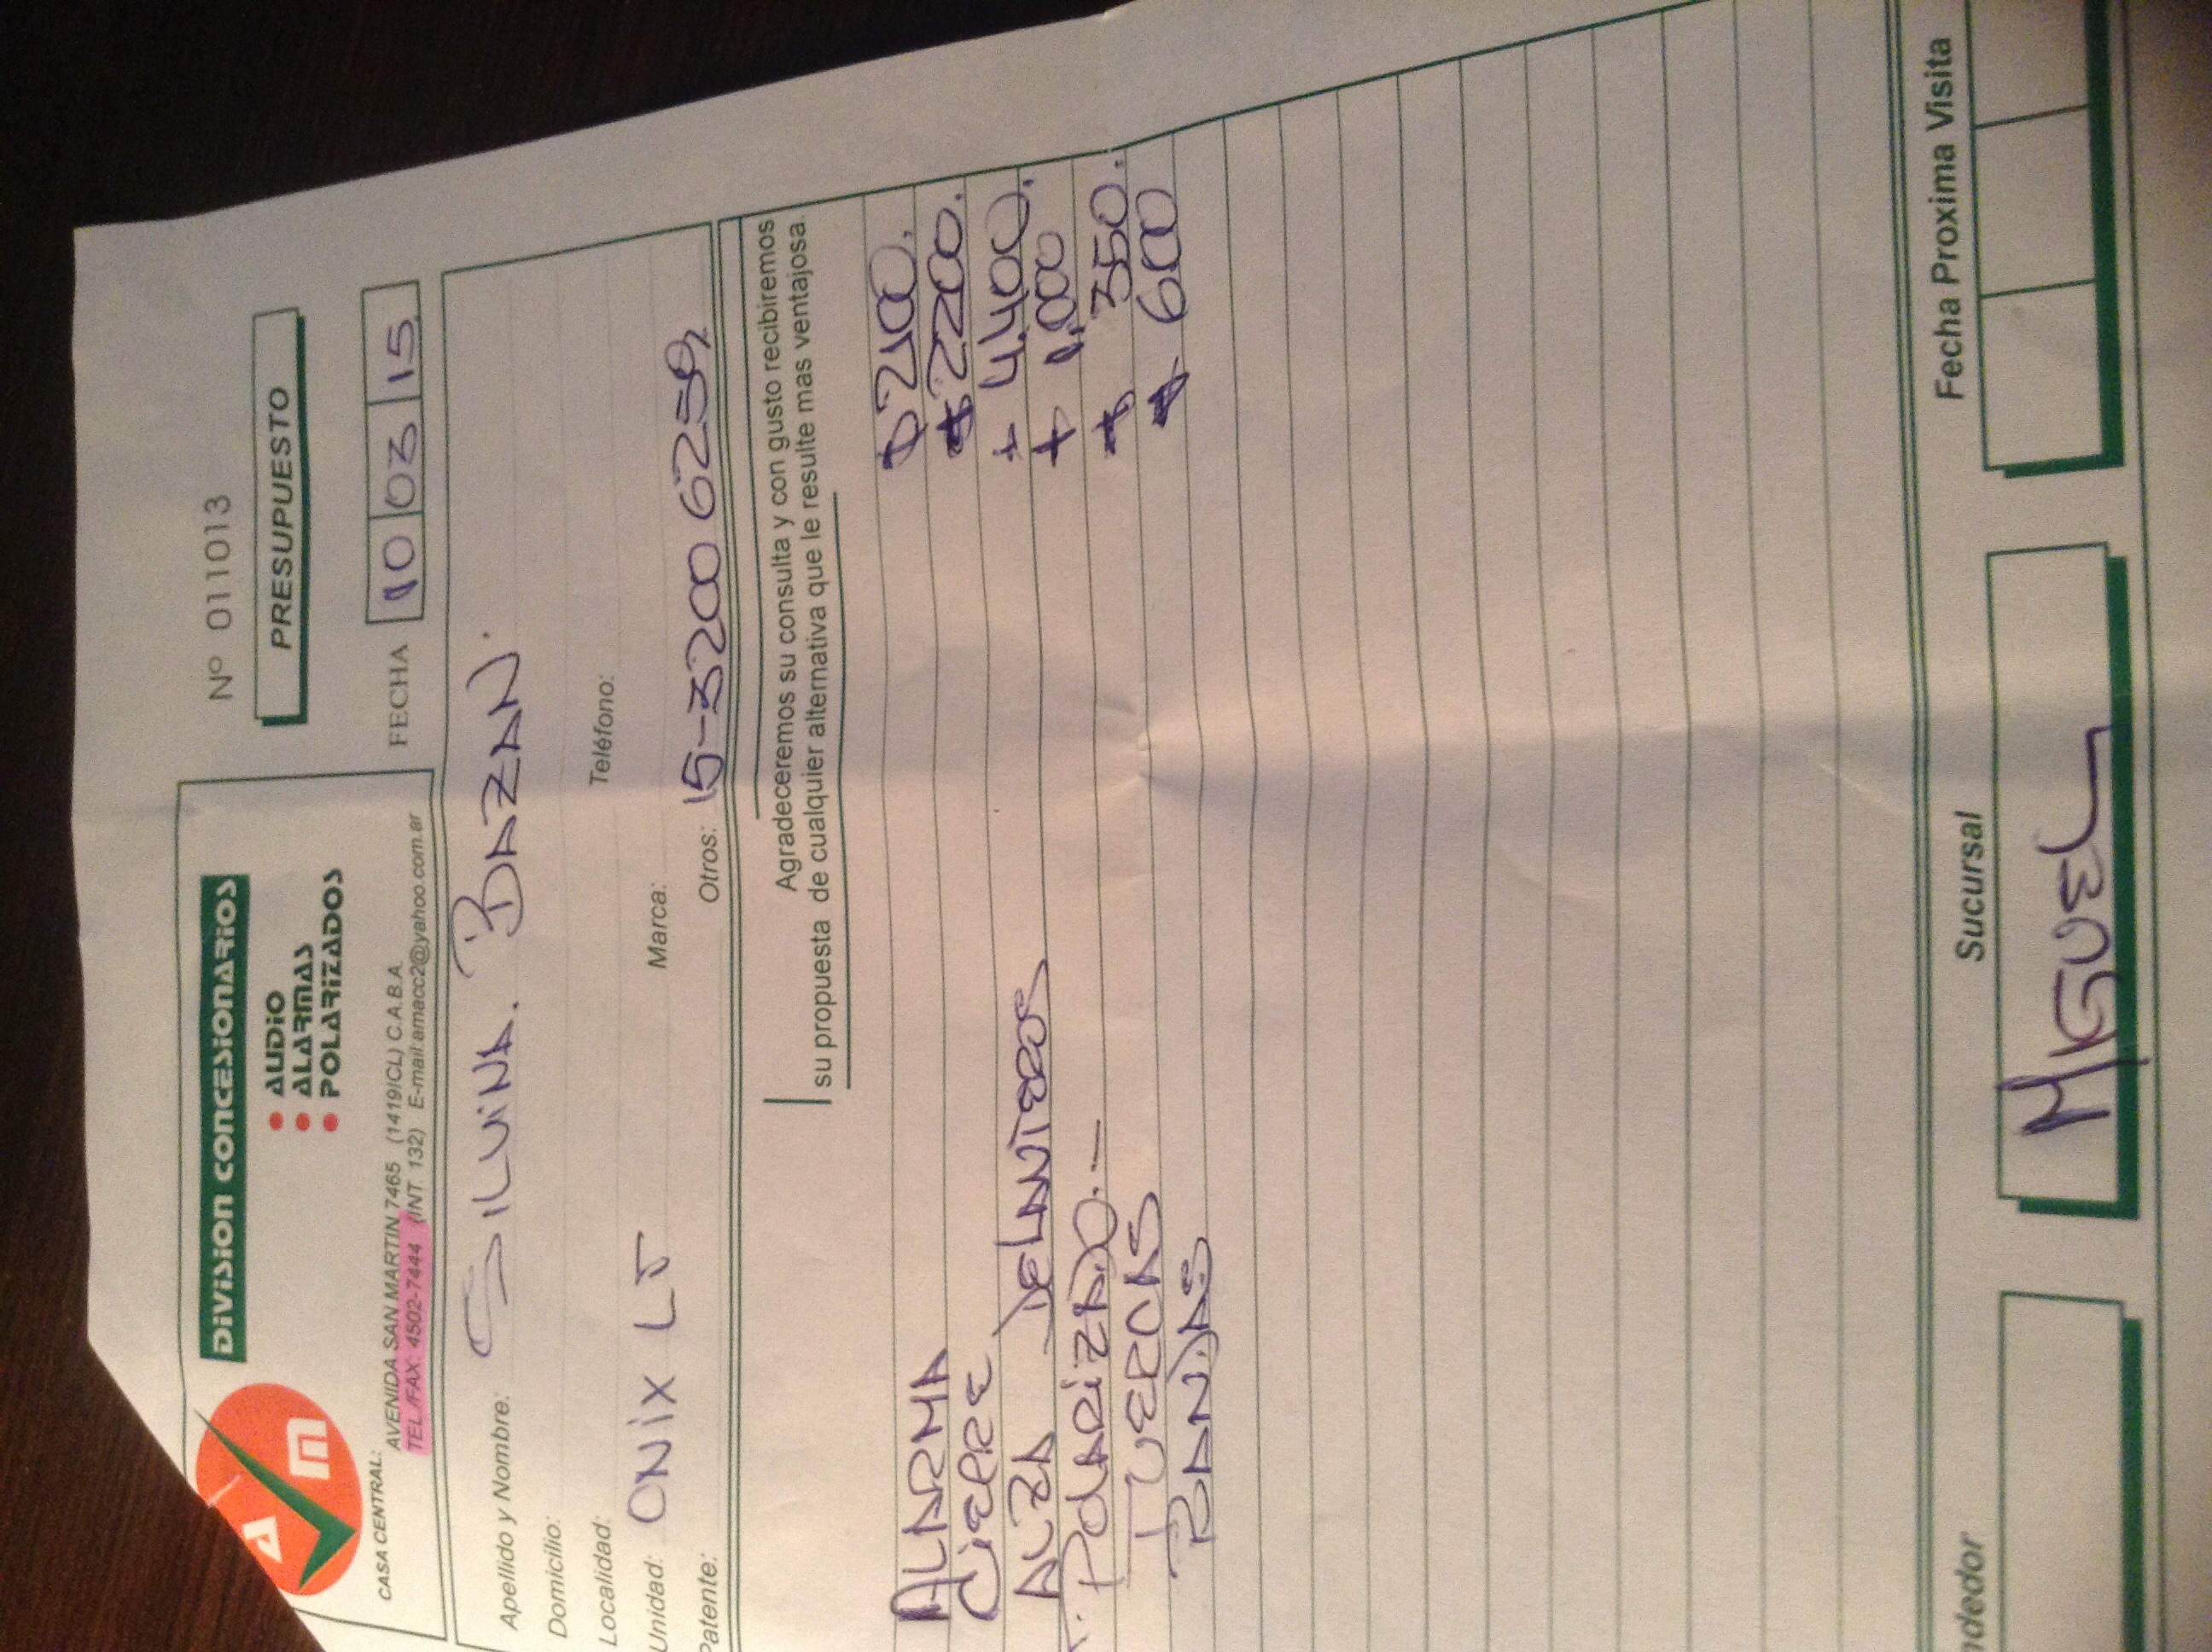 DIVISION CONCESIONARIOS
AUDIO
ALARMAS
POLARIZADOS
A
CASA CENTRAL:
AVENIDA SAN MARTIN 7465 (1419ICL) C.A.B.A.
TEL./FAX: 4502-7444 (INT. 132) E-mail:amacc2@yahoo.com.ar
Nº 011013
PRESUPUESTO
FECHA 10 03 15
Apellido y Nombre: SILVINA. BAZAN.
Domicilio:
Localidad: Teléfono:
Unidad: ONIX LT Marca:
Patente: Otros: 15-3200 6259
Agradeceremos su consulta y con gusto recibiremos
su propuesta de cualquier alternativa que le resulte mas ventajosa.
ALARMA $ 2400.
CIERRE $ 2200.
ALZA DELANTEROS $ 4.400.
POLARIZADO.— $ 1.000
TUERCAS $ 350.
BANDAS $ 600
ndedor
Sucursal
MIGUEL
Fecha Proxima Visita